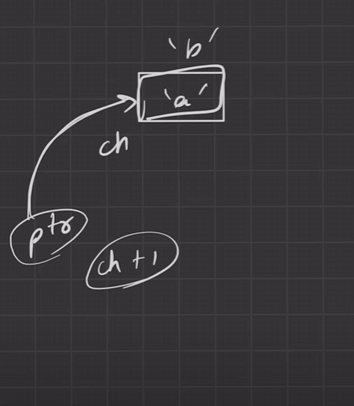 'b'
'a'
ch
ptr
ch + 1